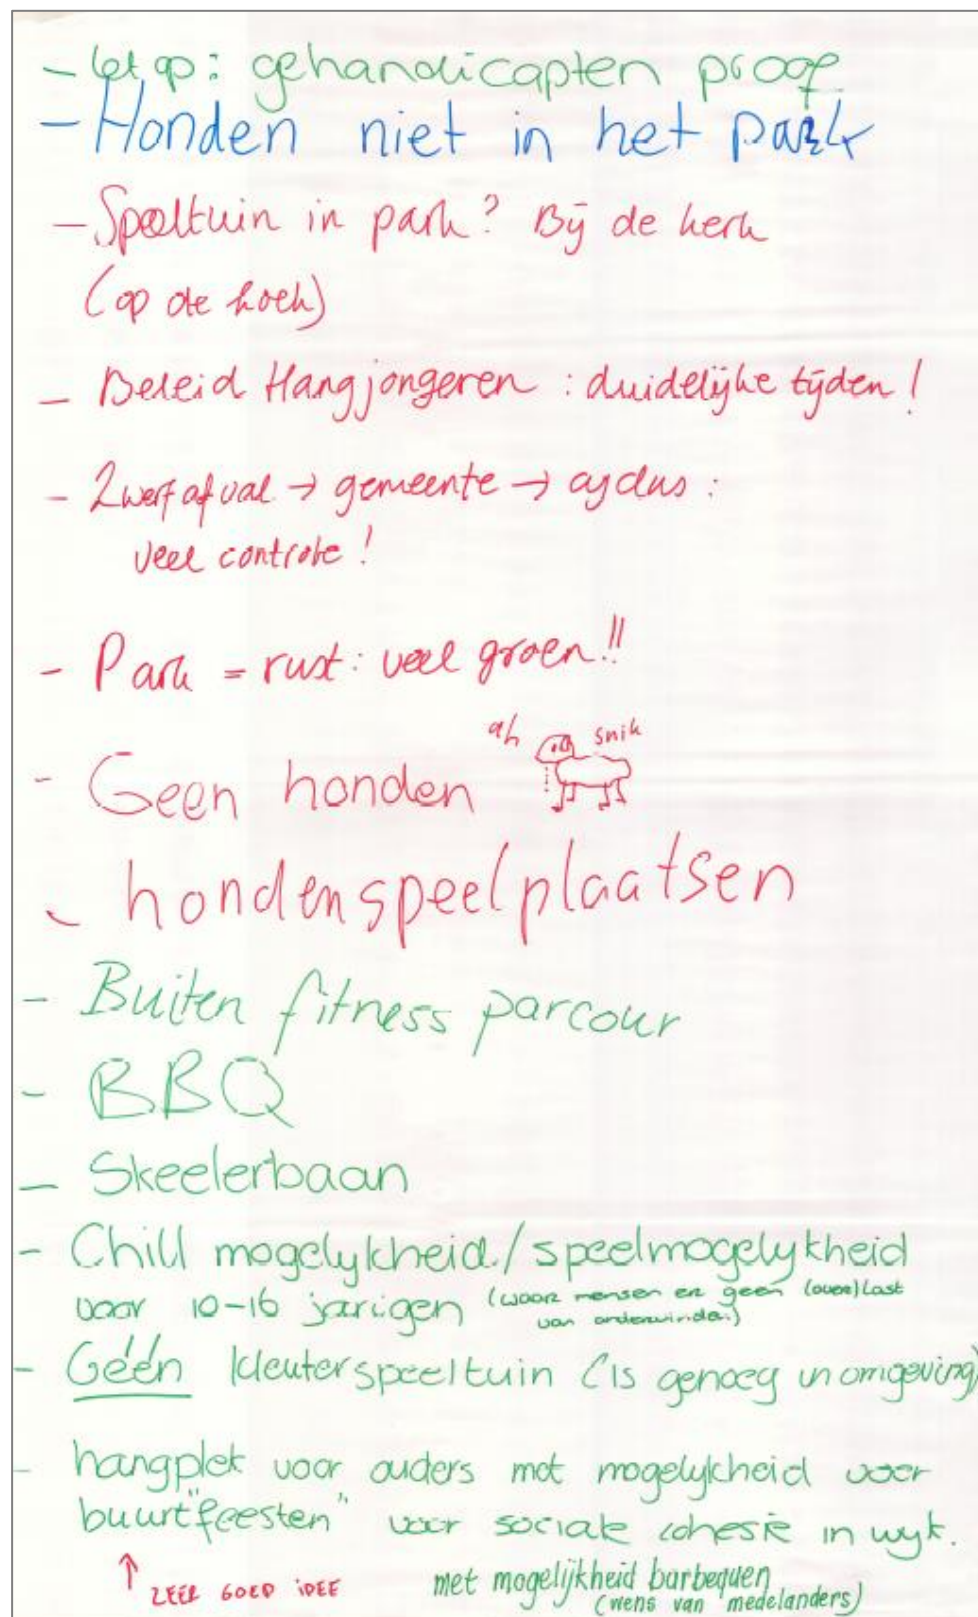 - Let op: gehandicapten proof
- Honden niet in het park
- Speeltuin in park? Bij de kerk
(op de hoek)
- Beleid Hangjongeren : duidelijke tijden!
- Zwerfafval → gemeente → cyclus :
veel controle!
- Park = rust: veel groen!!
ah snik
- Geen honden
- hondenspeelplaatsen
- Buiten fitness parcour
- BBQ
- Skeelerbaan
- Chill mogelykheid/speelmogelykheid
voor 10-16 jarigen (waar mensen er geen (over)last
van ondervinden)
- Géén kleuterspeeltuin (is genoeg in omgeving)
- hangplek voor ouders met mogelykheid voor
buurt"feesten" voor sociale cohesie in wyk.
↑ ZEER GOED IDEE met mogelijkheid barbequen
(wens van medelanders)